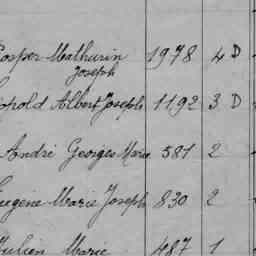 Prosper Mathurin 1978 4 D
Joseph
Léopold Albert Joseph 1192 3 D
André Georges Marie 581 2
Eugène Marie Joseph 830 2
Julien Marie 487 1